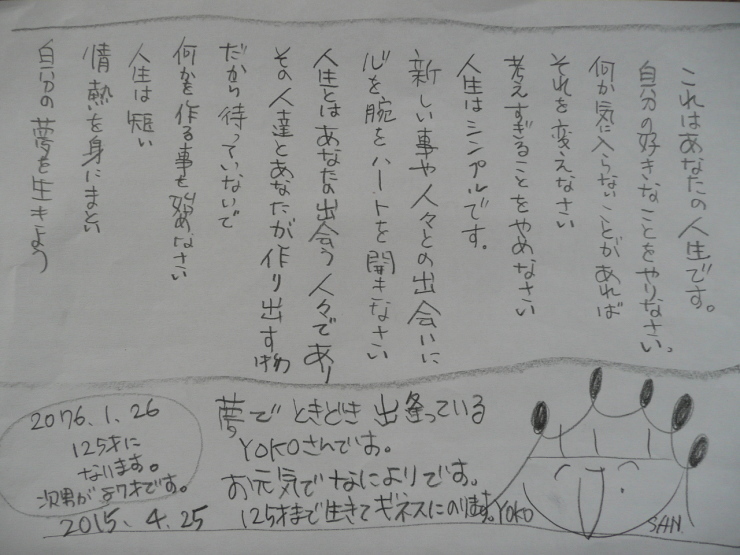 これはあなたの人生です。
自分の好きなことをやりなさい。
何か気に入らないことがあれば
それを変えなさい
考えすぎることをやめなさい
人生はシンプルです。
新しい事や人々との出会いに
心を、腕を、ハートを開きなさい
人生とはあなたの出会う人々であり
その人達とあなたが作り出す物
だから待っていないで
何かを作る事を始めなさい
人生は短い
情熱を身にまとい
自分の夢を生きよう
2076.1.26
125才に
なります。
次男が87才です。
2015.4.25
夢でときどき出逢っている
YOKOさんです。
お元気でなによりです。
125才まで生きてギネスにのります。
YOKO
SAN